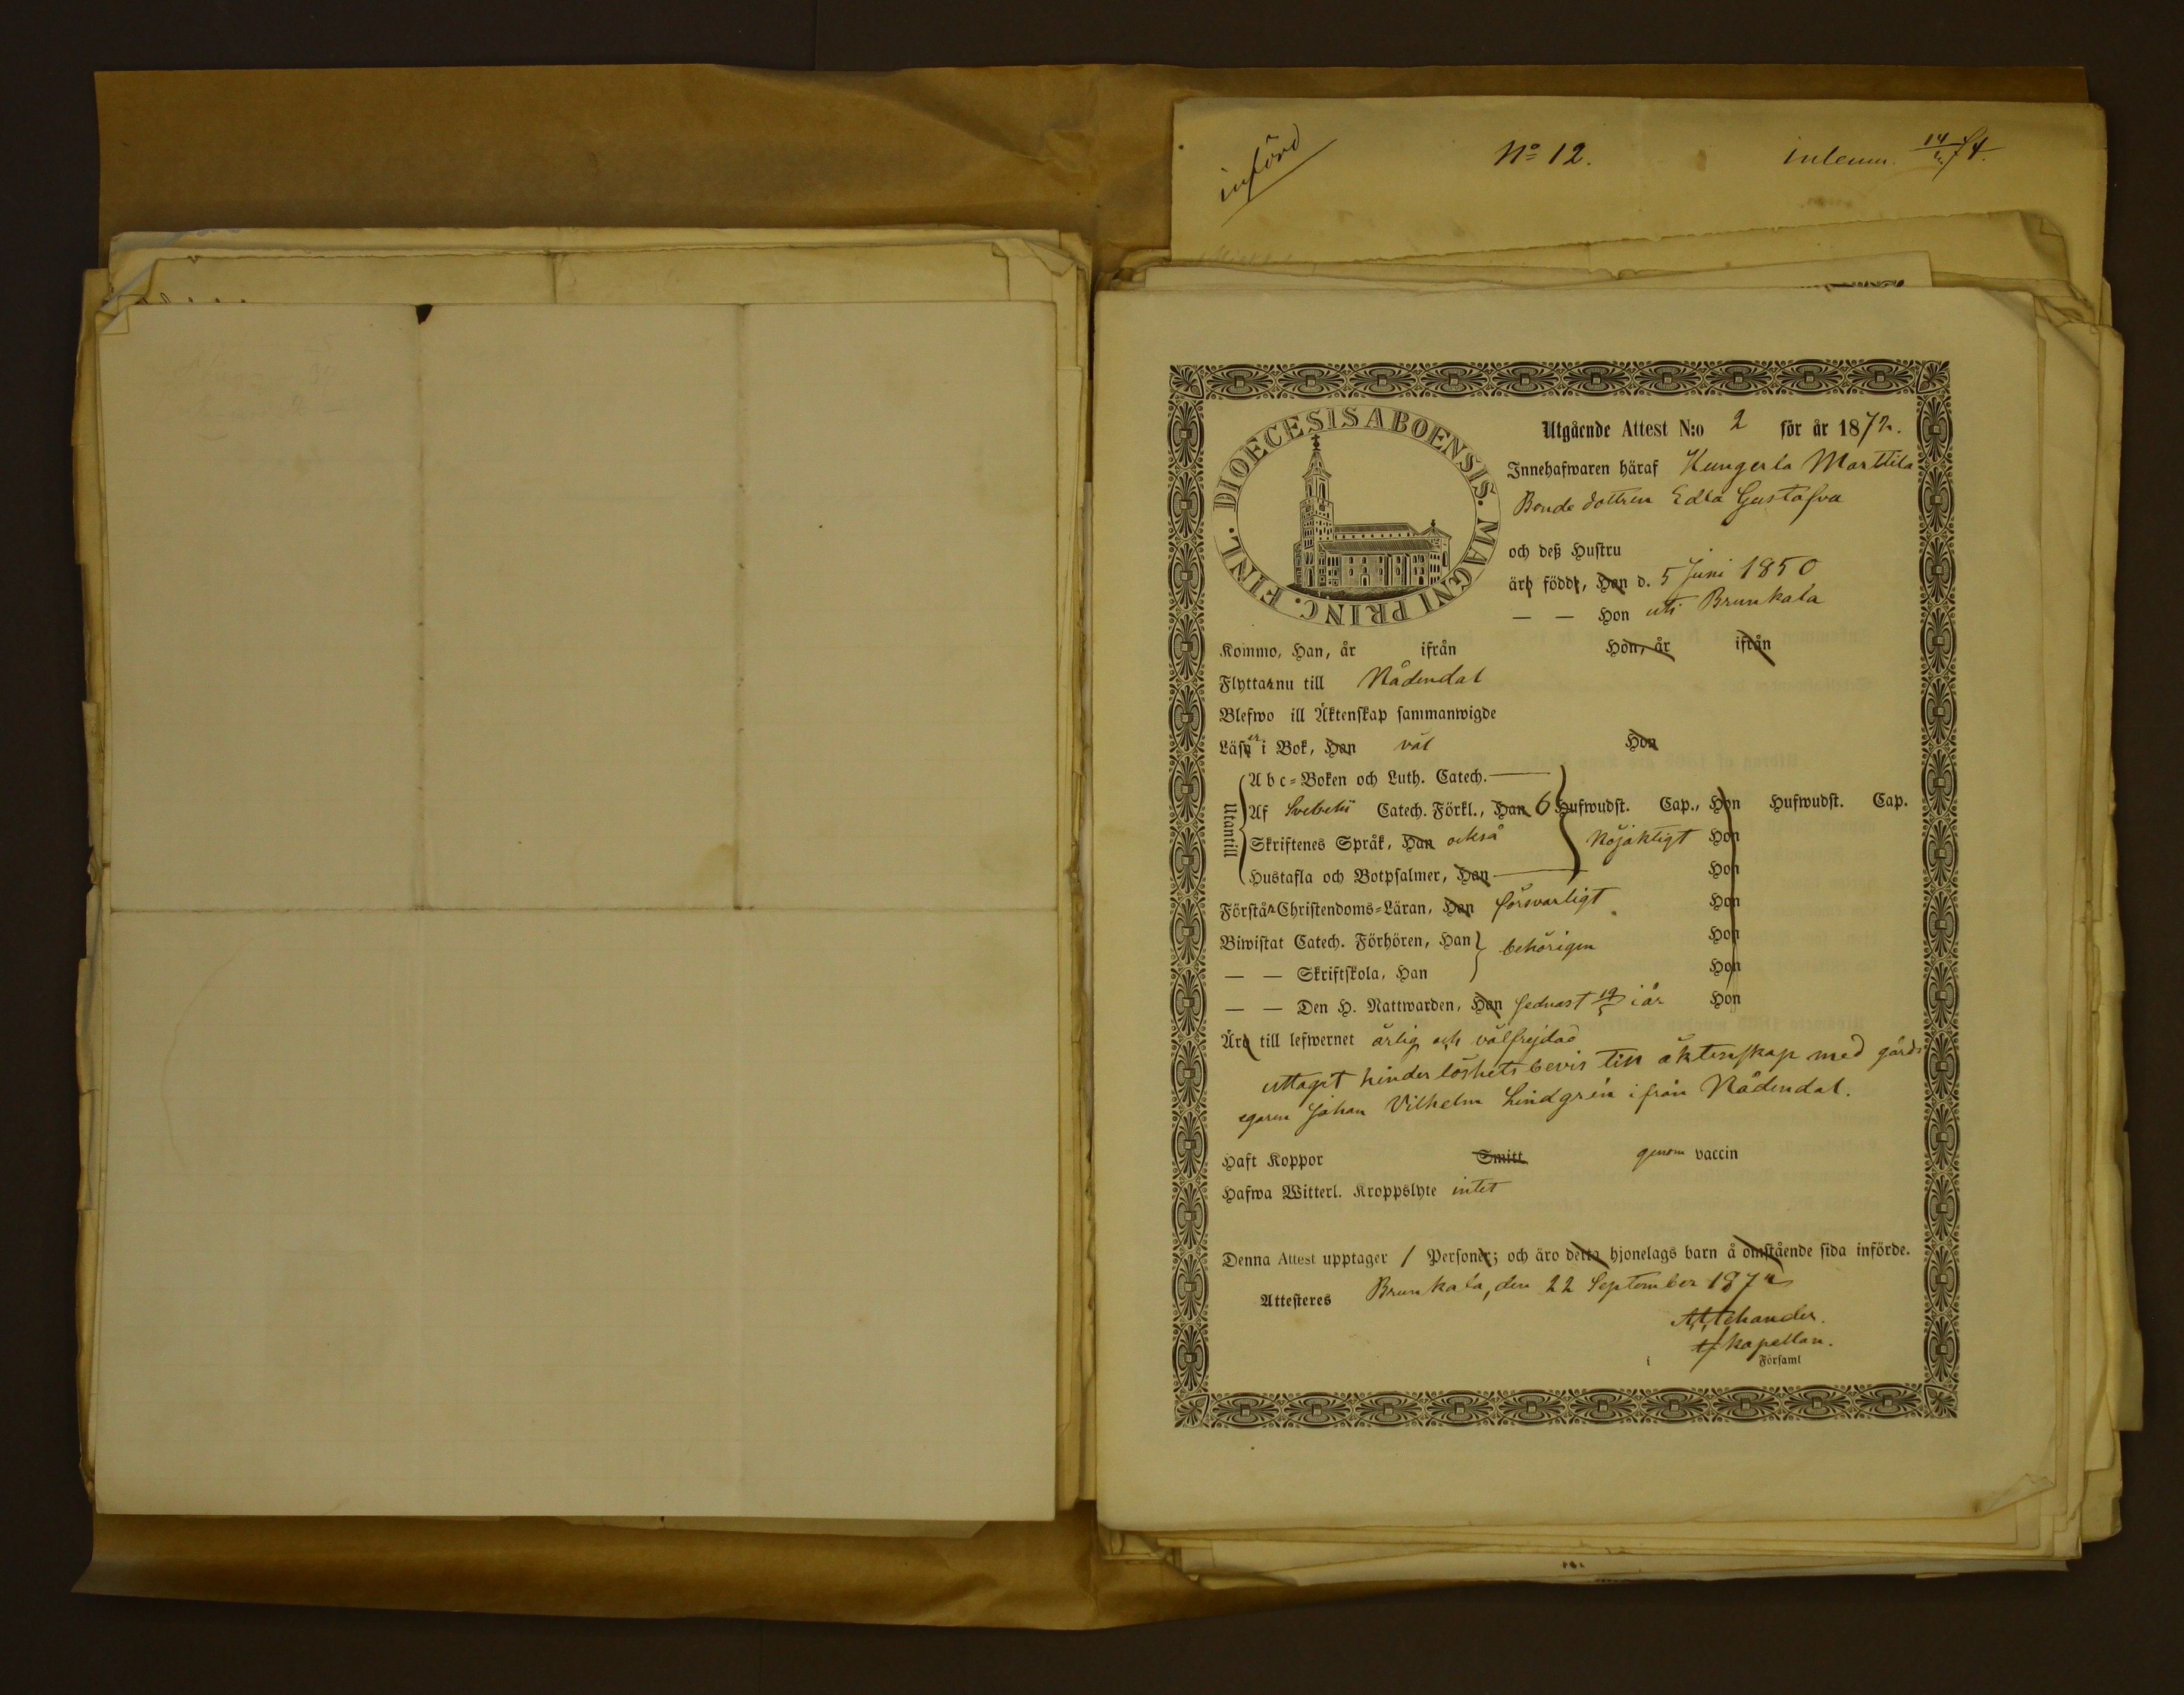 införd
No 12.
inlemn. 14/74.
DIOECESIS ABOENSIS. MAGNI PRINC. FINL.
Utgående Attest N:o 2 för år 1872.
Innehafwaren häraf Kungerla Marttila
Bonde dottren Edla Gustafva
och deß Hustru
äro födde, Han d. 5 Juni 1850
— — Hon uti Brunkala
Kommo, Han, år ifrån Hon, år ifrån
Flyttar nu till Nådendal
Blefwo ill Äktenskap sammanwigde
Läser i Bok, Han väl Hon
Utantill
Abc-Boken och Luth. Catech. —
Af Svebelii Catech. Förkl., Han 6 Hufwudst. Cap., Hon Hufwudst. Cap.
Skriftenes Språk, Han också Nöjaktigt Hon
Hustafla och Botpsalmer, Han — Hon
Förstår Christendoms-Läran, Han försvarligt Hon
Biwistat Catech. Förhören, Han behörigen Hon
— — Skriftskola, Han Hon
— — Den H. Nattwarden, Han sednast 19/5 i år Hon
Äro till lefwernet ärlig och välfrejdad
uttagit hinderlöshets bevis till äktenskap med gårds
egaren Johan Vilhelm Lindgrén ifrån Nådendal.
Haft Koppor Smitt genom vaccin
Hafwa Witterl. Kroppslyte intet
Denna Attest upptager 1 Personer; och äro detta hjonelags barn å omstående sida införde.
Attesteres Brunkala, den 22 September 1872
tf kapellan.
i Församl